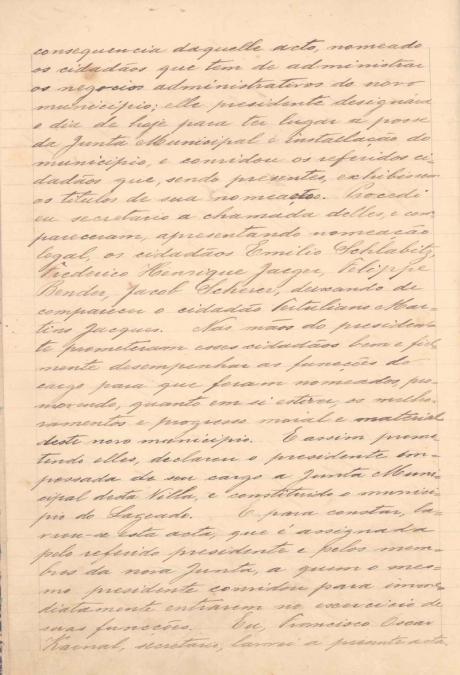 consequencia daquelle acto, nomeado
os cidadãos que tem de administrar
os negocios administrativos do novo
municipio; elle presidente designára
o dia de hoje para ter lugar a posse
da Junta Municipal e installação do
municipio, e convidou os referidos ci-
dadãos que, sendo presentes, exhibissem
os titulos de sua nomeação. Procedi
eu secretario a chamada delles, e com-
pareceram, apresentando nomeação
legal, os cidadãos Emilio Schlabitz,
Frederico Henrique Jaeger, Felippe
Bender, Jacob Scherer, deixando de
comparecer o cidadão Tertuliano Mar-
tins Jacques. Nas mãos do presiden-
te prometteram esses cidadãos bem e fiel-
mente desempenhar as funcções do
cargo para que foram nomeados, pro-
movendo, quanto em si estiver, os melho-
ramentos e progresso moral e material
deste novo municipio. E assim prome-
tendo elles, declarou o presidente em-
possada de seu cargo a Junta Muni-
cipal desta Villa, e constituido o munici-
pio do Lageado. E para constar, la-
vrou-se esta acta, que é assignada
pelo referido presidente e pelos mem-
bros da nova Junta, a quem o mes-
mo presidente convidou para imme-
diatamente entrarem no exercicio de
suas funcções. Eu, Francisco Oscar
Karnal, secretario, lavrei a presente acta